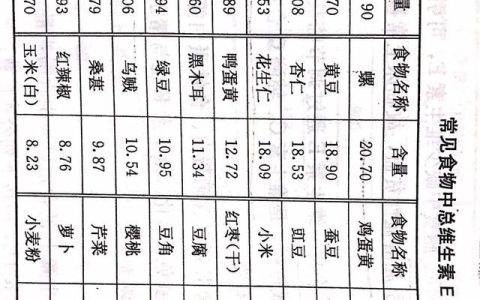 常见食物中总维生素E
量 食物名称 含量 食物名称
90 螺 20.70 鸡蛋黄
70 黄豆 18.90 蚕豆
08 杏仁 18.53 豇豆
53 花生仁 18.09 小米
89 鸭蛋黄 12.72 红枣(干)
60 黑木耳 11.34 豆腐
94 绿豆 10.95 豆角
06 乌贼 10.54 樱桃
79 桑葚 9.87 芹菜
93 红辣椒 8.76 萝卜
70 玉米(白) 8.23 小麦粉